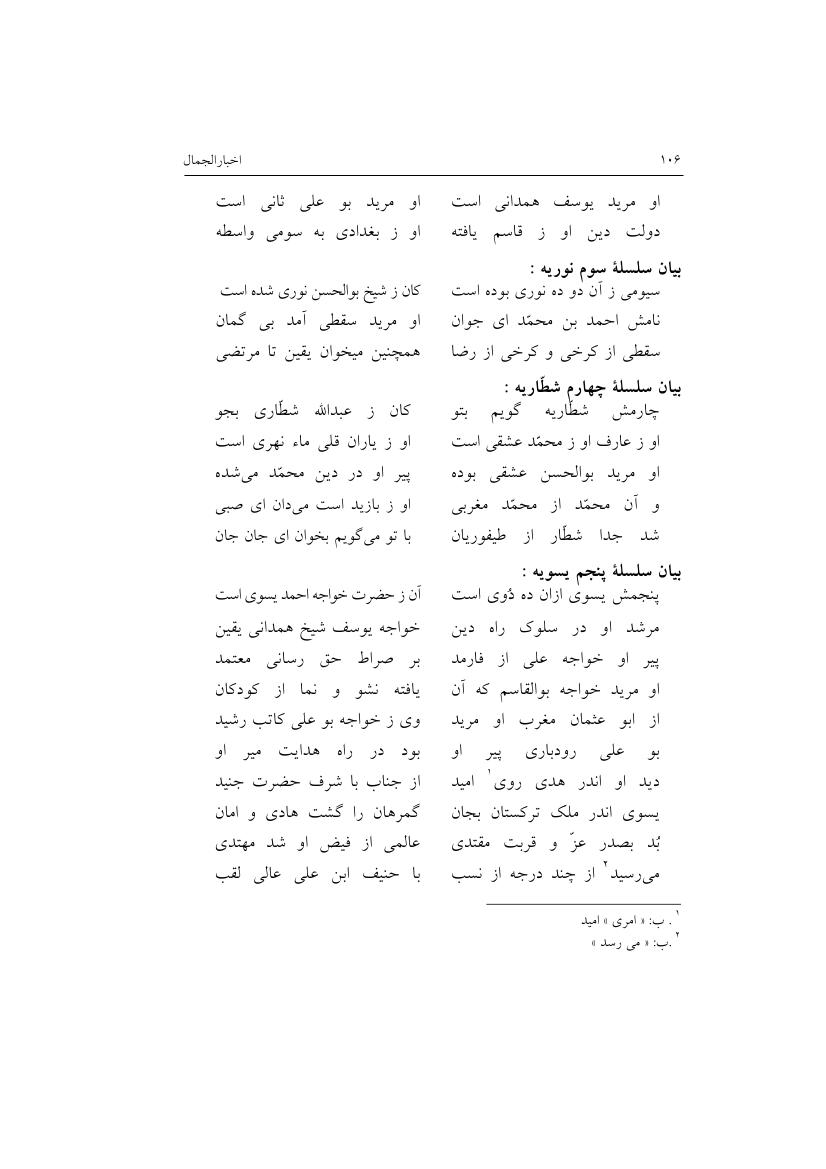 ۱۰۶ اخبارالجمال
او مرید یوسف همدانی است او مرید بو علی ثانی است
دولت دین او ز قاسم یافته او ز بغدادی به سومی واسطه
بیان سلسلهٔ سوم نوریه :
سیومی ز آن دو ده نوری بوده است کان ز شیخ بوالحسن نوری شده است
نامش احمد بن محمّد ای جوان او مرید سقطی آمد بی گمان
سقطی از کرخی و کرخی از رضا همچنین میخوان یقین تا مرتضی
بیان سلسلهٔ چهارم شطّاریه :
چارمش شطّاریه گویم بتو کان ز عبدالله شطّاری بجو
او ز عارف او ز محمّد عشقی است او ز یاران قلی ماء نهری است
او مرید بوالحسن عشقی بوده پیر او در دین محمّد می‌شده
و آن محمّد از محمّد مغربی او ز بازید است می‌دان ای صبی
شد جدا شطّار از طیفوریان با تو می‌گویم بخوان ای جان جان
بیان سلسلهٔ پنجم یسویه :
پنجمش یسوی ازان ده دُوی است آن ز حضرت خواجه احمد یسوی است
مرشد او در سلوک راه دین خواجه یوسف شیخ همدانی یقین
پیر او خواجه علی از فارمد بر صراط حق رسانی معتمد
او مرید خواجه بوالقاسم که آن یافته نشو و نما از کودکان
از ابو عثمان مغرب او مرید وی ز خواجه بو علی کاتب رشید
بو علی رودباری پیر او بود در راه هدایت میر او
دید او اندر هدی روی۱ امید از جناب با شرف حضرت جنید
یسوی اندر ملک ترکستان بجان گمرهان را گشت هادی و امان
بُد بصدر عزّ و قربت مقتدی عالمی از فیض او شد مهتدی
می‌رسید۲ از چند درجه از نسب با حنیف ابن علی عالی لقب
۱. ب: « امری » امید
۲.ب: « می رسد »